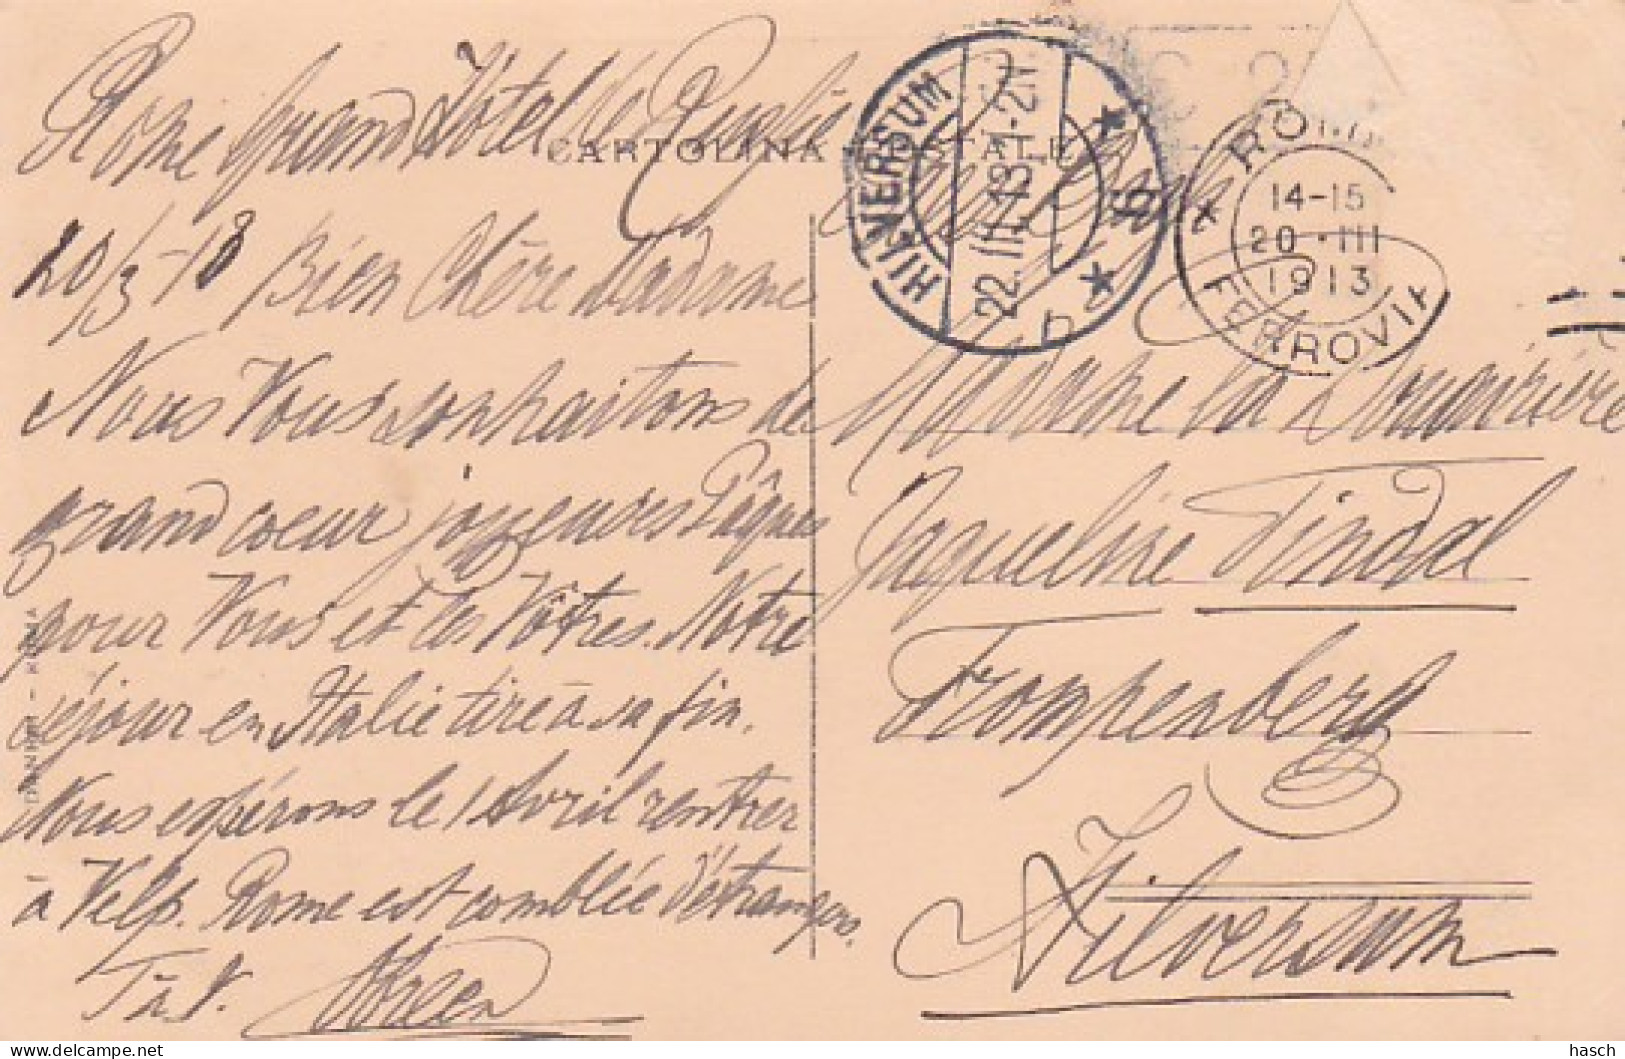 Rome Grand Hôtel de Russie
20/3-13 Bien Chère Madame
Nous Vous souhaitons de
grand coeur joyeuses Pâques
pour Vous et les Vôtres. Notre
séjour en Italie tire à sa fin.
Nous espérons le 1 Avril rentrer
à Velp. Rome est comblée d'étrangers.
T. à V.
CARTOLINA POSTALE
HILVERSUM
22.III.13 1-2N
ROMA
14-15
20·III
1913
FERROVIA
Madame la Douairière
Jaqueline Tindal
Trompenberg
Hilversum
ROMA
hasch
delcampe.net